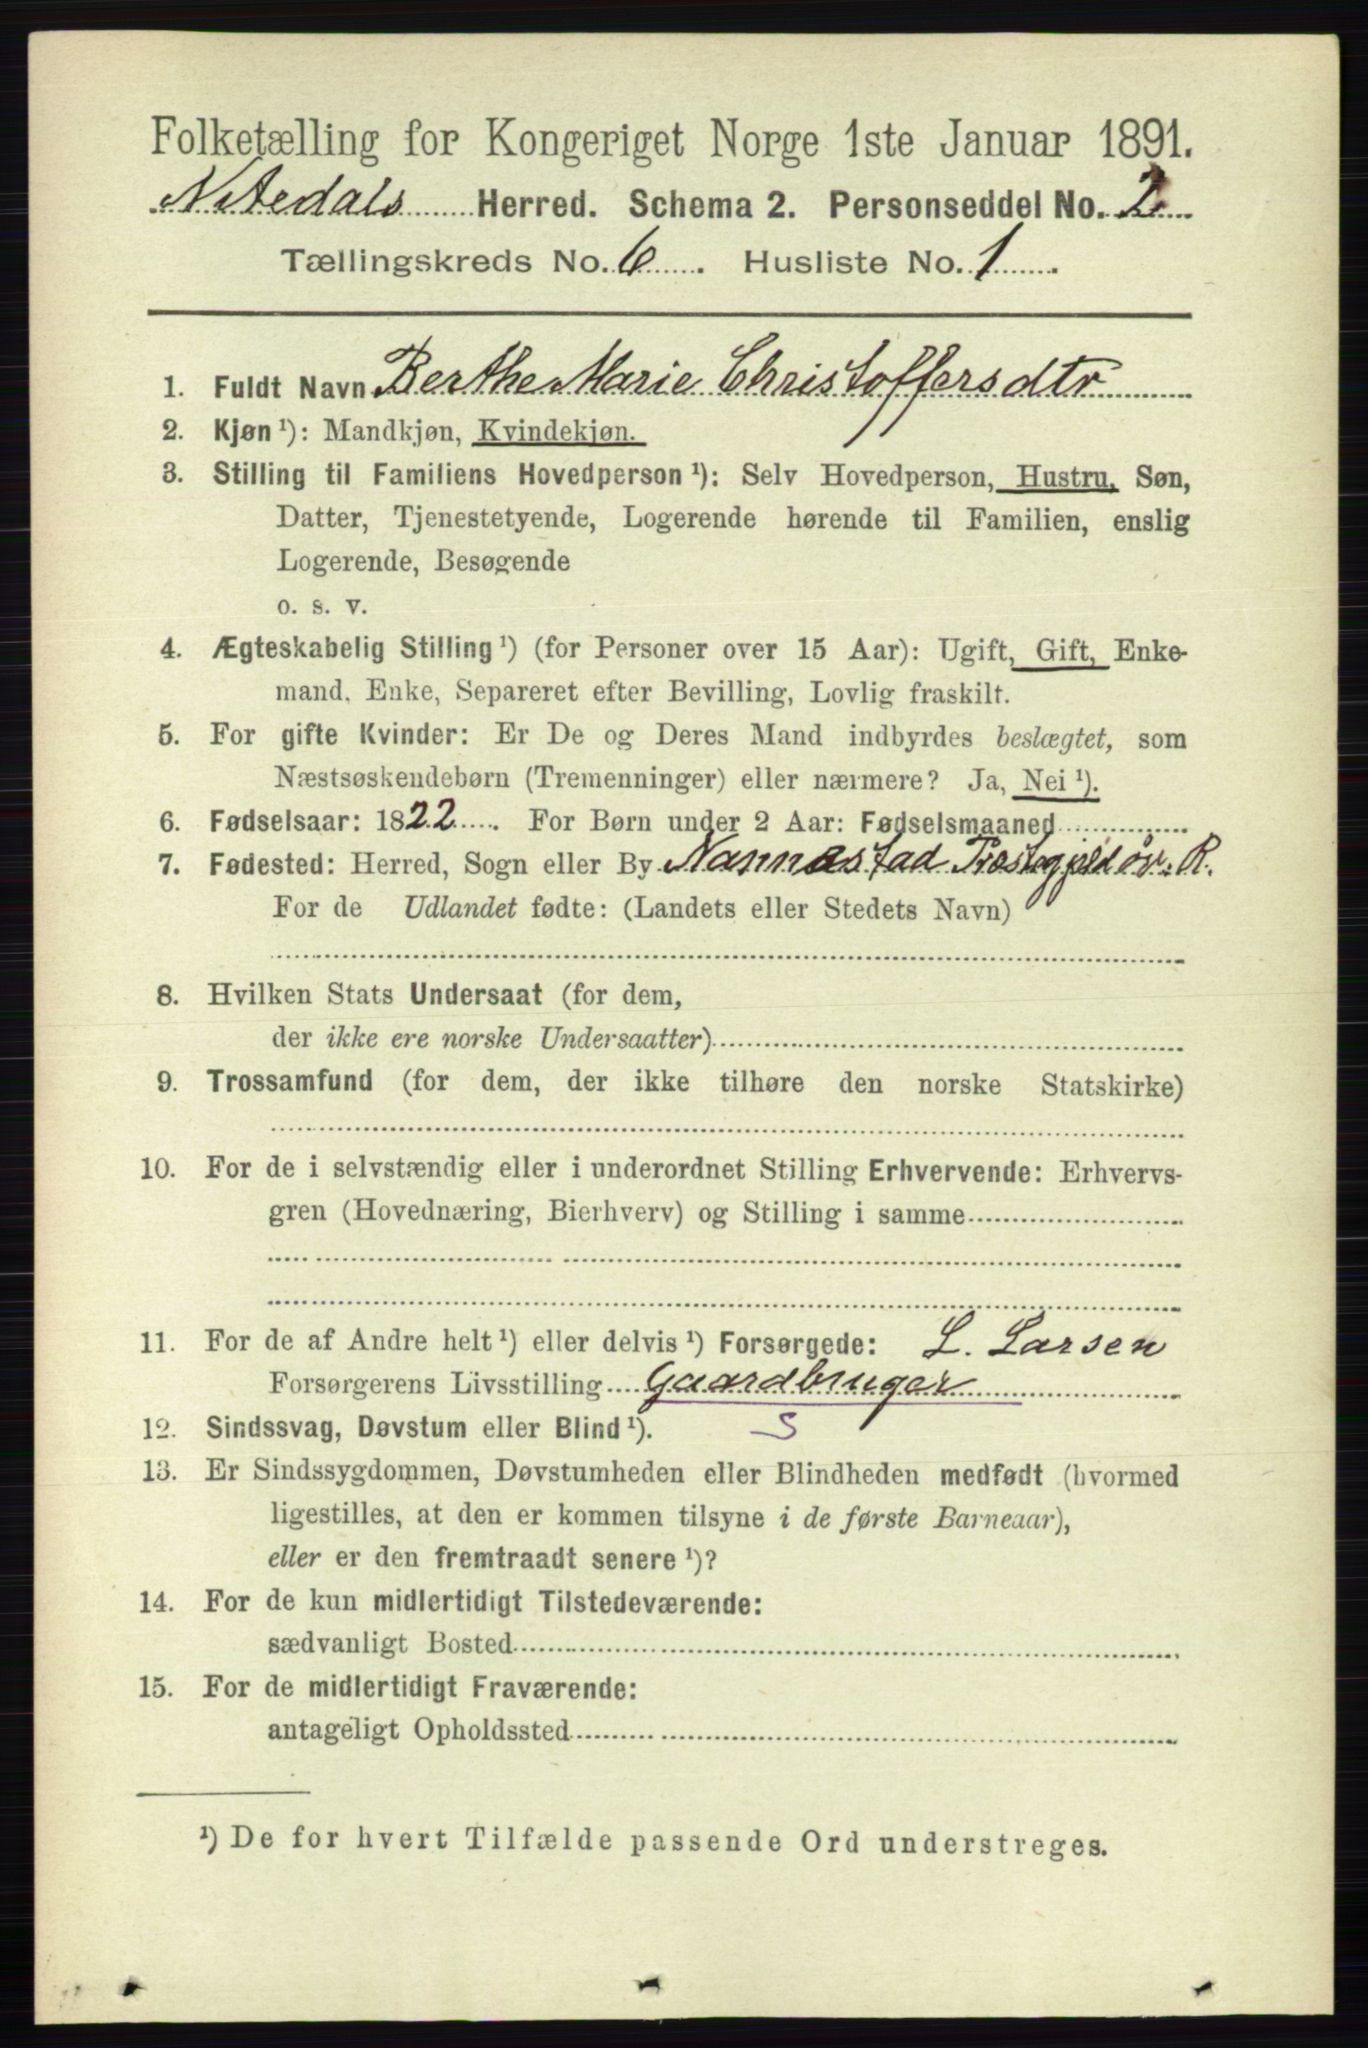 Folketælling for Kongeriget Norge 1ste Januar 1891.
Nitedals Herred. Schema 2. Personseddel No. 2
Tællingskreds No. 6. Husliste No. 1.
1. Fuldt Navn Berthe Marie Christoffersdtr
2. Kjøn ¹): Mandkjøn, Kvindekjøn.
3. Stilling til Familiens Hovedperson ¹): Selv Hovedperson, Hustru, Søn,
Datter, Tjenestetyende, Logerende hørende til Familien, enslig
Logerende, Besøgende
o. s. v.
4. Ægteskabelig Stilling ¹) (for Personer over 15 Aar): Ugift, Gift, Enke-
mand, Enke, Separeret efter Bevilling, Lovlig fraskilt.
5. For gifte Kvinder: Er De og Deres Mand indbyrdes beslægtet, som
Næstsøskendebørn (Tremenninger) eller nærmere? Ja, Nei ¹).
6. Fødselsaar: 1822. For Børn under 2 Aar: Fødselsmaaned
7. Fødested: Herred, Sogn eller By Nannestad Prestegjeld øv. R.
For de Udlandet fødte: (Landets eller Stedets Navn)
8. Hvilken Stats Undersaat (for dem,
der ikke ere norske Undersaatter)
9. Trossamfund (for dem, der ikke tilhøre den norske Statskirke)
10. For de i selvstændig eller i underordnet Stilling Erhvervende: Erhvervs-
gren (Hovednæring, Bierhverv) og Stilling i samme
11. For de af Andre helt ¹) eller delvis ¹) Forsørgede: L. Larsen
Forsørgerens Livsstilling Gaardbruger
12. Sindssvag, Døvstum eller Blind ¹). S
13. Er Sindssygdommen, Døvstumheden eller Blindheden medfødt (hvormed
ligestilles, at den er kommen tilsyne i de første Barneaar),
eller er den fremtraadt senere ¹)?
14. For de kun midlertidigt Tilstedeværende:
sædvanligt Bosted
15. For de midlertidigt Fraværende:
antageligt Opholdssted
¹) De for hvert Tilfælde passende Ord understreges.